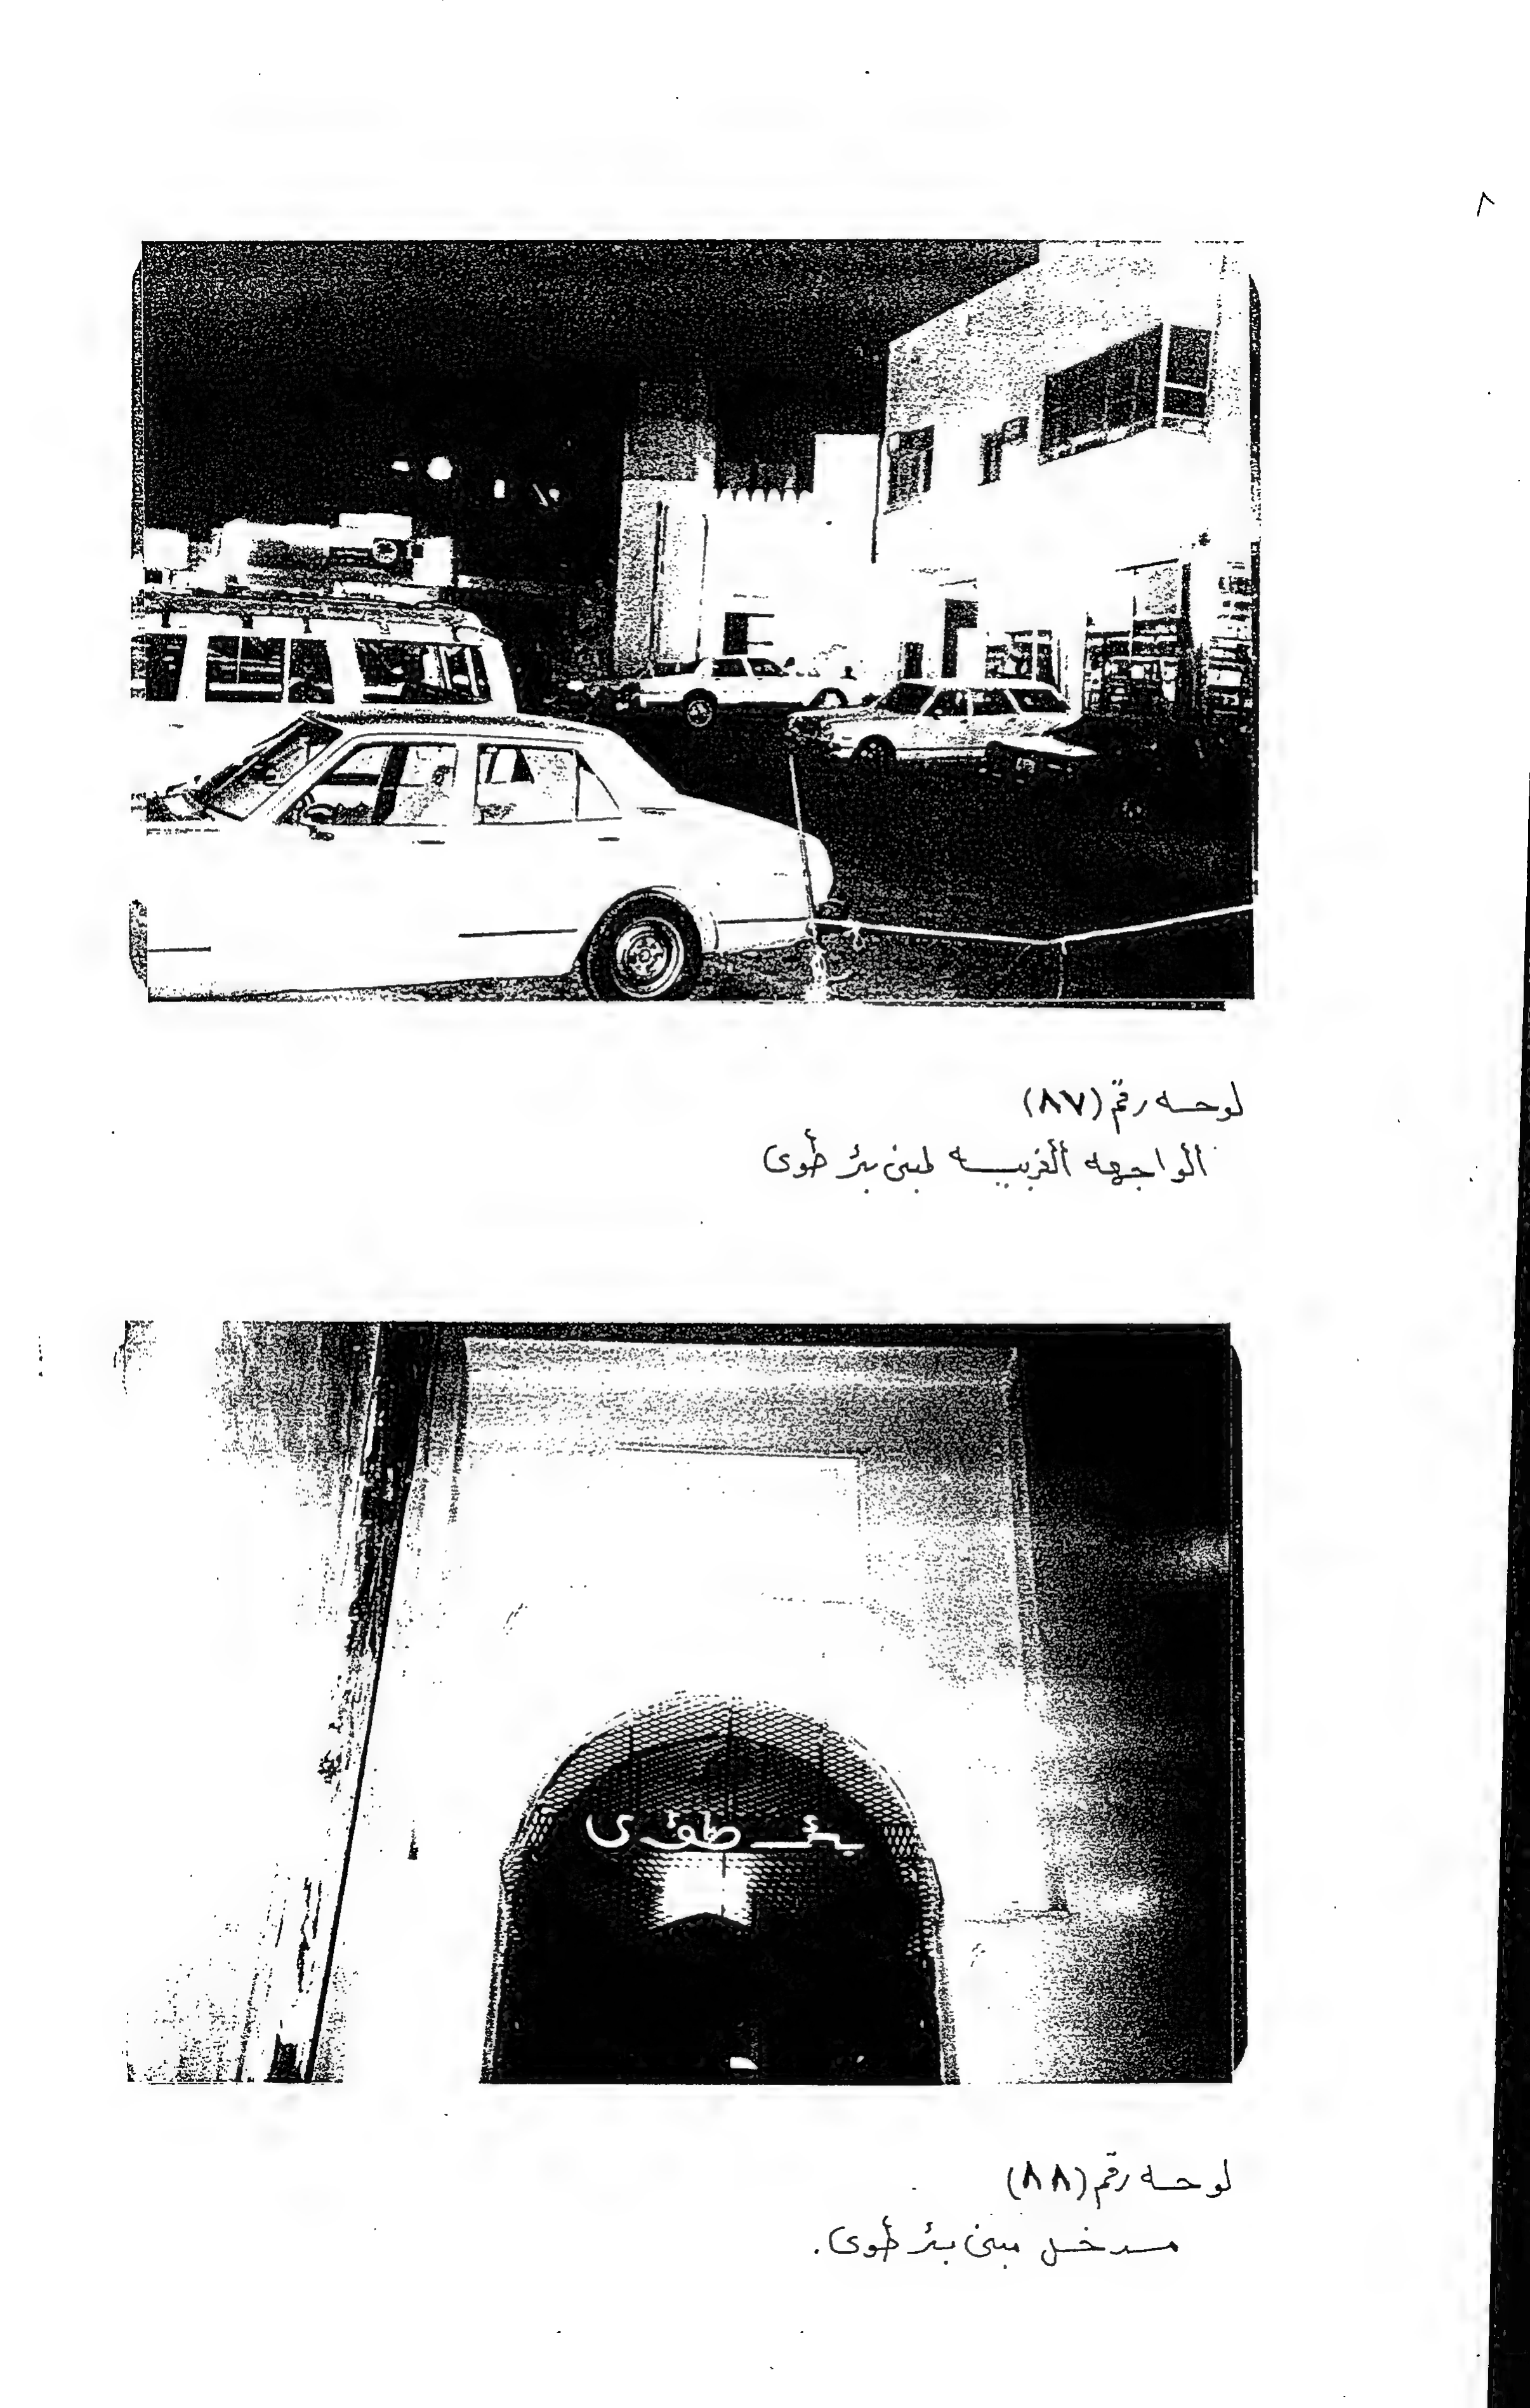 ٨
لوحه رقم (٨٧)
الواجهه الغربيه لمبنى بئر طوى
بئر طوى
لوحه رقم (٨٨)
مدخل مبنى بئر طوى.